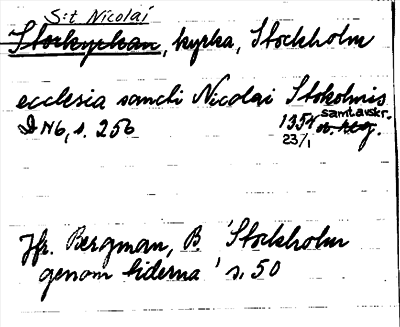 S:t Nicolai
Storkyrkan, kyrka, Stockholm
ecclesia sancti Nicolai Stokolmis
D N6, s. 256 1354 samt.avskr.
23/1
Jfr. Bergman, B. 'Stockholm
genom tiderna' s. 50